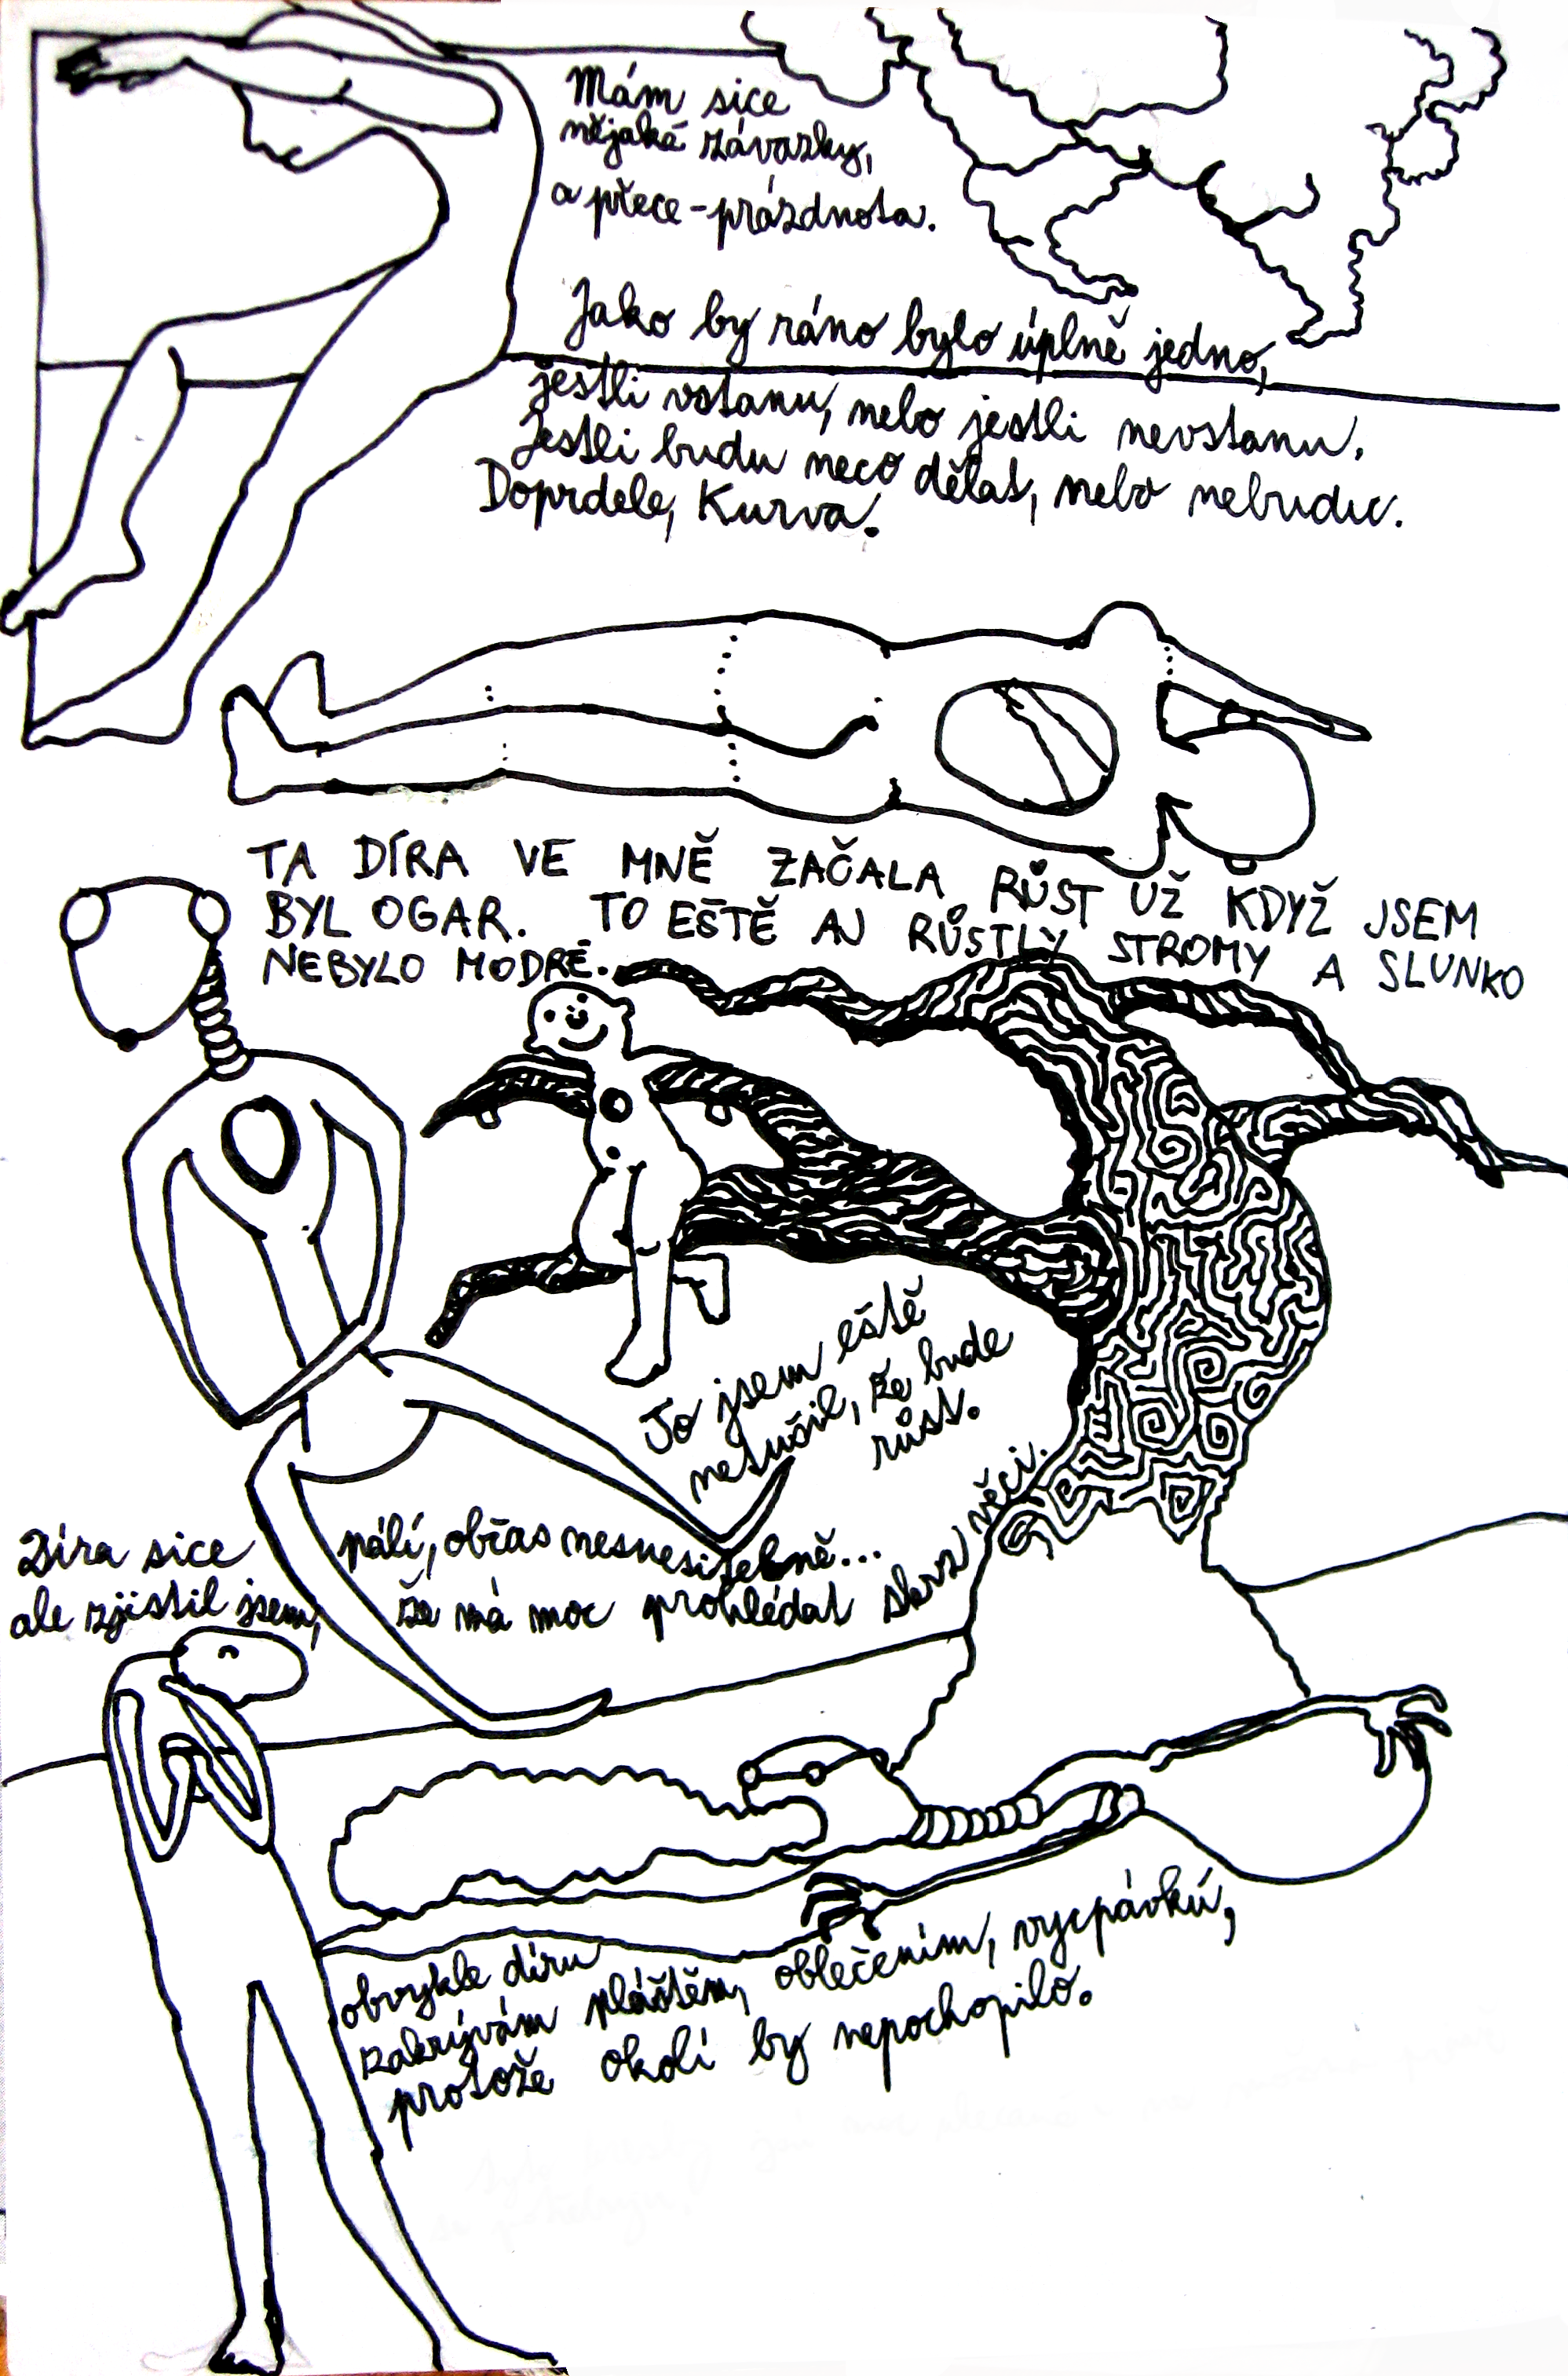 Mám sice
nějaké závazky,
a přece - prázdnota.
Jako by ráno bylo úplně jedno,
jestli vstanu, nebo jestli nevstanu.
Jestli budu neco dělat, nebo nebudu.
Doprdele, Kurva.
TA DÍRA VE MNĚ ZAČALA RŮST UŽ KDYŽ JSEM
BYL OGAR. TO EŠTĚ AJ RŮSTLY STROMY A SLUNKO
NEBYLO MODRÉ.
To jsem eště
netušil, že bude
růst.
Díra sice pálí, občas nesnesitelně...
ale zjistil jsem, že má moc prohlédat skrz věci.
obvykle díru
zakrývám pláštěm, oblečením, vycpávkú,
protože okolí by nepochopilo.